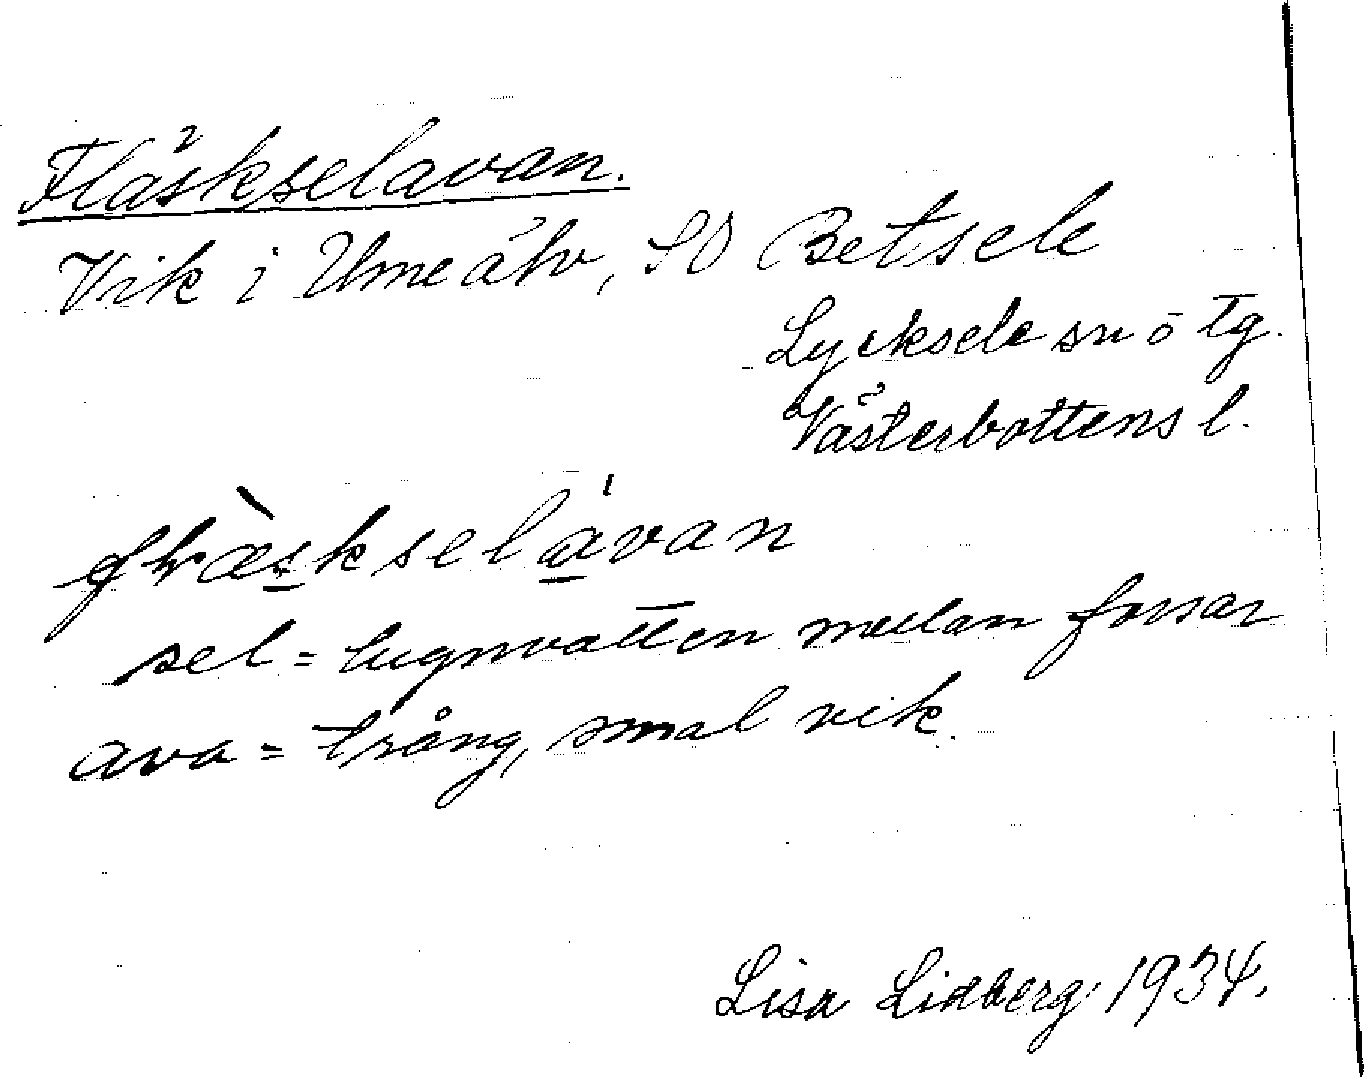 Fläskselavan.
Vik i Umeälv, SO Betsele
Lycksele sn o tg.
Västerbottens l.
flæskselavan
sel = lugnvatten mellan forsar
ava = trång, smal vik.
Lisa Lidberg 1934.